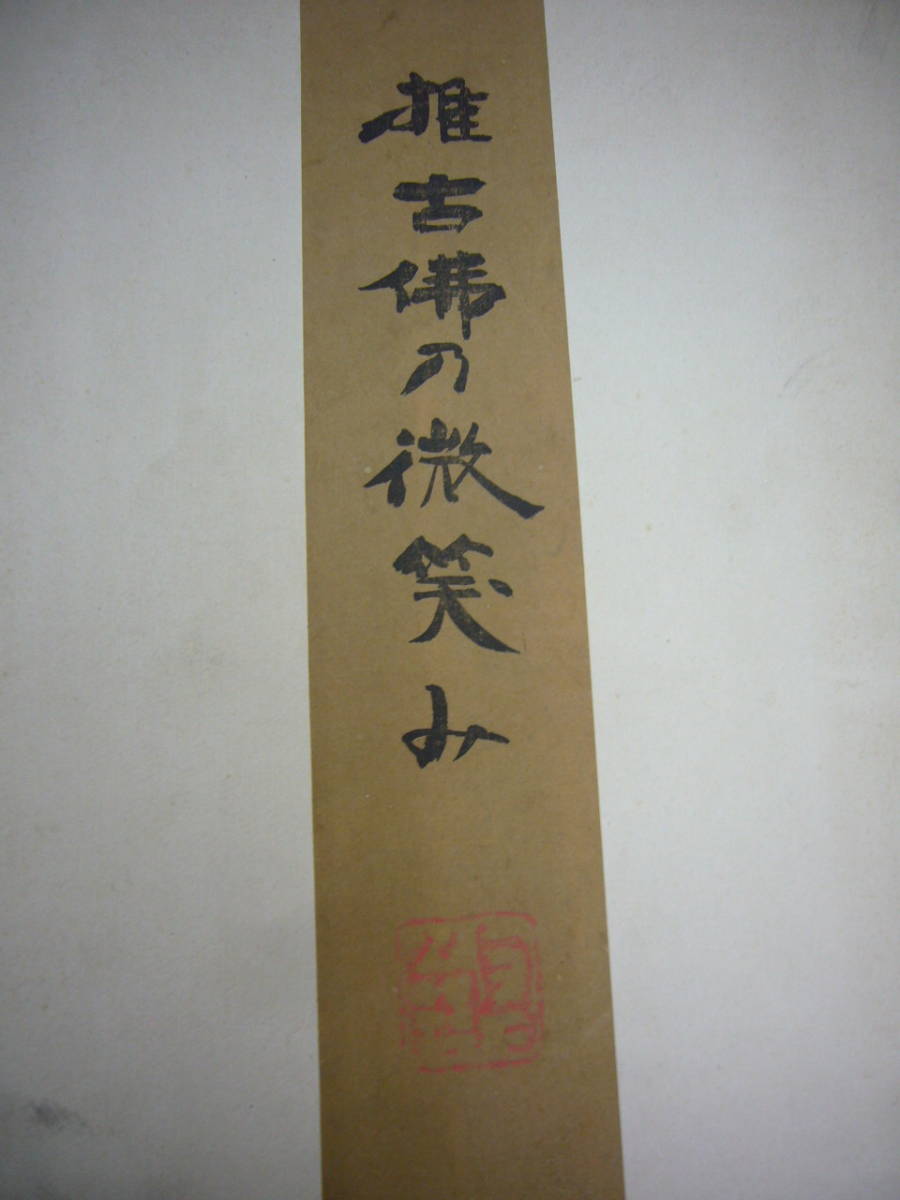 推古佛乃微笑み